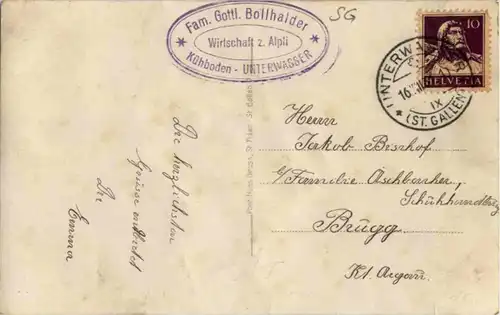 Fam. Gottl. Bollhalder
Wirtschaft z. Älpli
Kühboden - UNTERWASSER
SG
10
HELVETIA
UNTERWASSER
16.
IX
(ST. GALLEN)
Die herzlichsten
Grüsse entbietet
Die
Emma
Herrn
Jakob Bischof
c/ Familie Aeschbacher,
Schuhhandlung
Brugg
Kt. Argau.